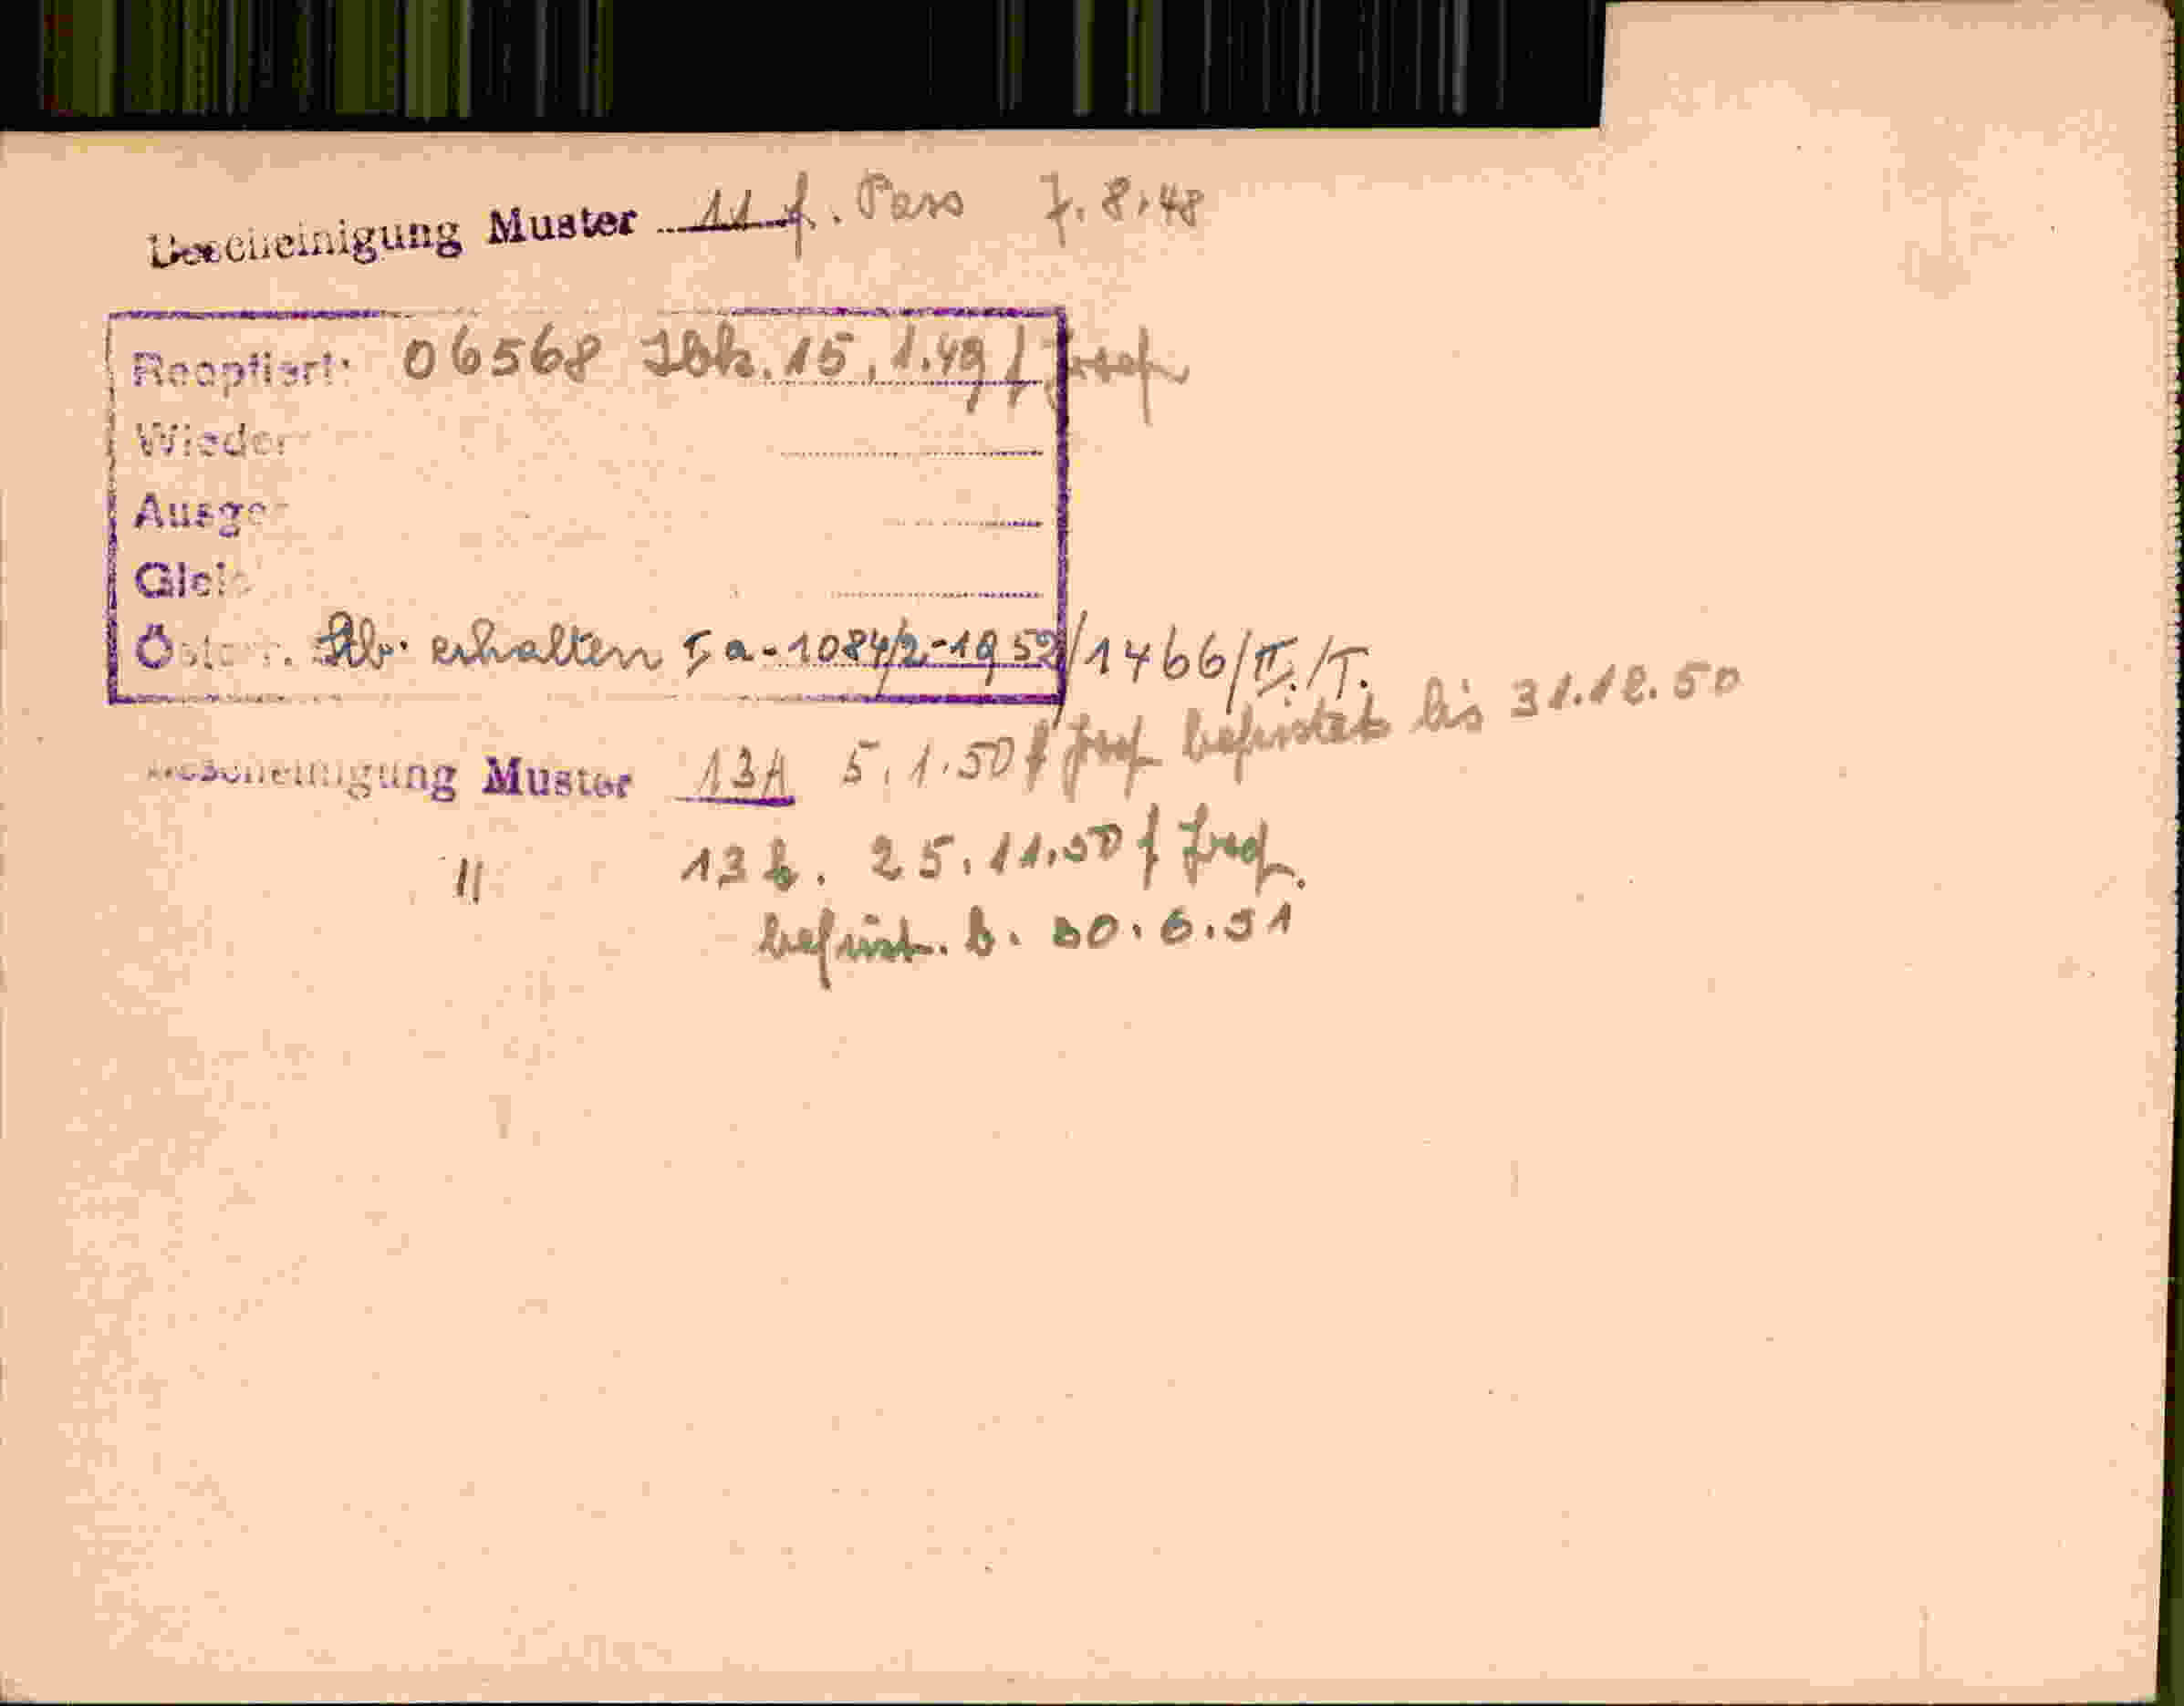 Bescheinigung Muster 11 f. Pass 7.8.48
Reoptiert: 06568 Ibk. 15.1.49 f Josef
Wieder
Ausge
Glei
Österr. Stb. erhalten Ia-1084/2-1952/1466/II./T.
Bescheinigung Muster 13A 5.1.50 f Josef befristet bis 31.12.50
" 13b. 25.11.50 f Josef.
befrist. b. 30.6.51